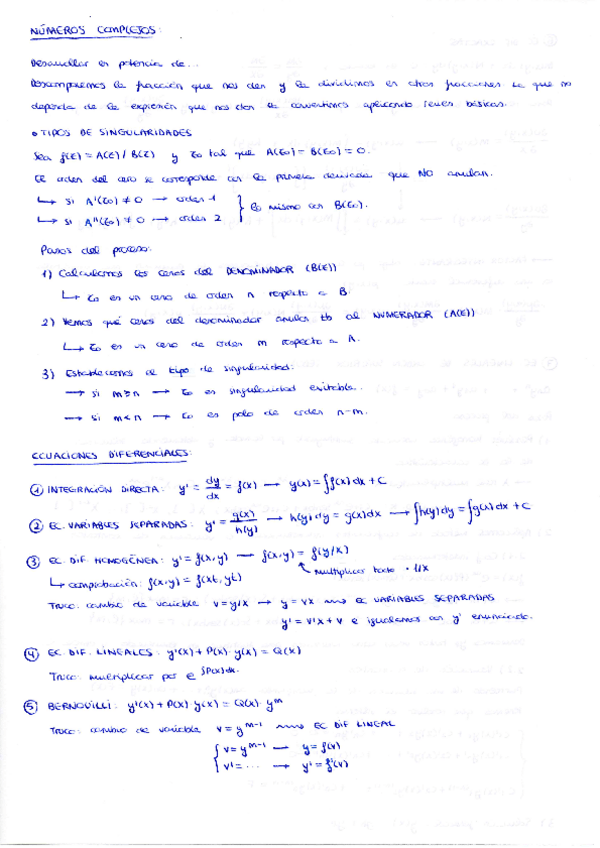 NÚMEROS COMPLEJOS:
Desarrollar en potencia de...
Descomponemos la fracción que nos den y la dividimos en otras fracciones. La que no
dependa de la expresión que nos den la convertimos aplicando series básicas.
• TIPOS DE SINGULARIDADES
Sea f(z) = A(z) / B(z) y z0 tal que A(z0) = B(z0) = 0.
El orden del cero se corresponde con la primera derivada que NO anulan.
↳ si A'(z0) ≠ 0 → orden 1 } lo mismo con B(z0).
↳ si A''(z0) ≠ 0 → orden 2
Pasos del proceso:
1) Calculamos los ceros del DENOMINADOR (B(z))
↳ z0 es un cero de orden n respecto a B
2) Vemos qué ceros del denominador anulan tb al NUMERADOR (A(z))
↳ z0 es un cero de orden m respecto a A.
3) Establecemos el tipo de singularidad:
→ si m ≥ n → z0 es singularidad evitable.
→ si m < n → z0 es polo de orden n-m.
ECUACIONES DIFERENCIALES:
① INTEGRACIÓN DIRECTA: y' = dy/dx = f(x) → y(x) = ∫f(x) dx + C
② EC. VARIABLES SEPARADAS: y' = g(x)/h(y) → h(y) dy = g(x) dx → ∫h(y) dy = ∫g(x) dx + C
③ EC. DIF. HOMOGÉNEA: y' = f(x,y) → f(x,y) = f(y/x)
↳ comprobación: f(x,y) = f(xt, yt) multiplicar todo · 1/x
Truco: cambio de variable v = y/x → y = vx ⟿ EC VARIABLES SEPARADAS
y' = v'x + v e igualamos con y' enunciado.
④ EC. DIF. LINEALES: y'(x) + P(x) · y(x) = Q(x)
Truco: multiplicar por e^∫P(x)dx.
⑤ BERNOUILLI: y'(x) + P(x) · y(x) = Q(x) · y^m
Truco: cambio de variable v = y^m-1 ⟿ EC DIF LINEAL
{ v = y^m-1 → y = f(v)
v' = ... → y' = f'(v)